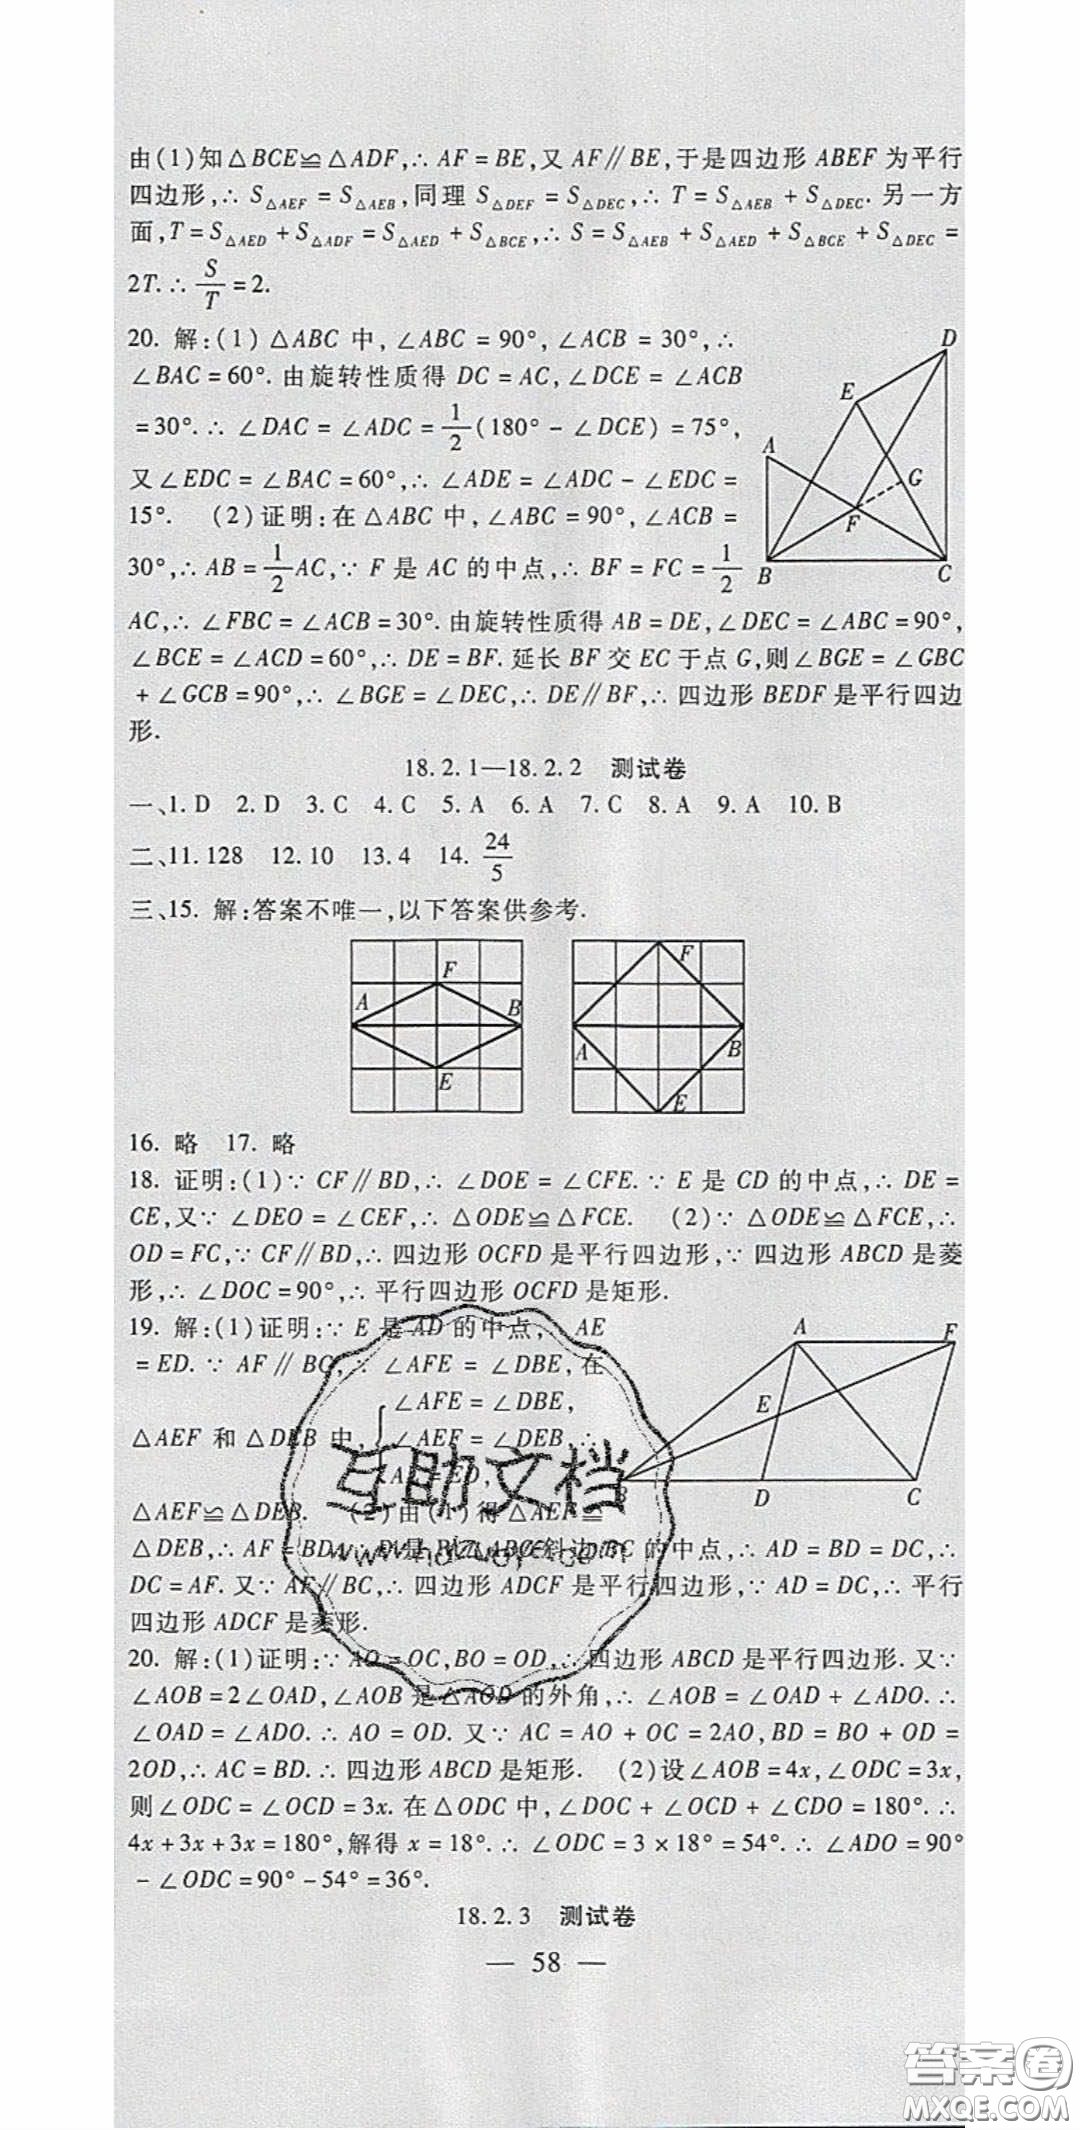 由(1)知△BCE≌△ADF,∴ AF=BE,又 AF∥BE,于是四边形 ABEF 为平行
四边形,∴ S△AEF=S△AEB,同理 S△DEF=S△DEC,∴ T=S△AEB+S△DEC. 另一方
面,T=S△AED+S△ADF=S△AED+S△BCE,∴ S=S△AEB+S△AED+S△BCE+S△DEC=
2T. ∴ S/T=2.
20. 解:(1) △ABC 中,∠ABC=90°,∠ACB=30°,∴
∠BAC=60°. 由旋转性质得 DC=AC,∠DCE=∠ACB
=30°. ∴ ∠DAC=∠ADC=1/2(180°-∠DCE)=75°,
又∠EDC=∠BAC=60°,∴ ∠ADE=∠ADC-∠EDC=
15°. (2)证明:在△ABC 中,∠ABC=90°,∠ACB=
30°,∴ AB=1/2AC,∵ F 是 AC 的中点,∴ BF=FC=1/2
D
E
A
G
F
B
C
AC,∴ ∠FBC=∠ACB=30°. 由旋转性质得 AB=DE,∠DEC=∠ABC=90°,
∠BCE=∠ACD=60°,∴ DE=BF. 延长 BF 交 EC 于点 G,则∠BGE=∠GBC
+∠GCB=90°,∴ ∠BGE=∠DEC,∴ DE∥BF,∴ 四边形 BEDF 是平行四边
形.
18.2.1—18.2.2 测试卷
一、1. D 2. D 3. C 4. C 5. A 6. A 7. C 8. A 9. A 10. B
二、11. 128 12. 10 13. 4 14. 24/5
三、15. 解:答案不唯一,以下答案供参考.
F
A
B
E
F
A
B
E
16. 略 17. 略
18. 证明:(1)∵ CF∥BD,∴ ∠DOE=∠CFE. ∵ E 是 CD 的中点,∴ DE=
CE,又∵ ∠DEO=∠CEF,∴ △ODE≌△FCE. (2)∵ △ODE≌△FCE,∴
OD=FC,∵ CF∥BD,∴ 四边形 OCFD 是平行四边形,∵ 四边形 ABCD 是菱
形,∴ ∠DOC=90°,∴ 平行四边形 OCFD 是矩形.
19. 解:(1)证明:∵ E 是 AD 的中点, AE
=ED. ∵ AF∥BC,∴ ∠AFE=∠DBE,在
∠AFE=∠DBE,
△AEF 和△DEB 中, ∠AEF=∠DEB, ∴
AE=ED,
△AEF≌△DEB. (2)由(1)得△AEF≌
A
F
E
B
D
C
△DEB,∴ AF=BD, D 是 Rt△ABC 斜边 BC 的中点,∴ AD=BD=DC,∴
DC=AF. 又∵ AF∥BC,∴ 四边形 ADCF 是平行四边形,∵ AD=DC,∴ 平行
四边形 ADCF 是菱形.
20. 解:(1)证明:∵ AO=OC,BO=OD,∴ 四边形 ABCD 是平行四边形. 又∵
∠AOB=2∠OAD,∠AOB 是△AOD 的外角,∴ ∠AOB=∠OAD+∠ADO. ∴
∠OAD=∠ADO. ∴ AO=OD. 又∵ AC=AO+OC=2AO,BD=BO+OD=
2OD,∴ AC=BD. ∴ 四边形 ABCD 是矩形. (2)设∠AOB=4x,∠ODC=3x,
则∠ODC=∠OCD=3x. 在△ODC 中,∠DOC+∠OCD+∠CDO=180°. ∴
4x+3x+3x=180°,解得 x=18°. ∴ ∠ODC=3×18°=54°. ∴ ∠ADO=90°
-∠ODC=90°-54°=36°.
18.2.3 测试卷
— 58 —
互助文档
答案卷
MXQE.COM